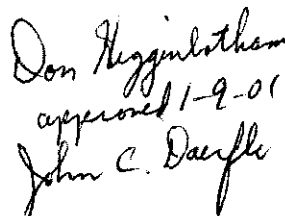 Don Higginbotham
approved 1-9-01
John C. Daerfle